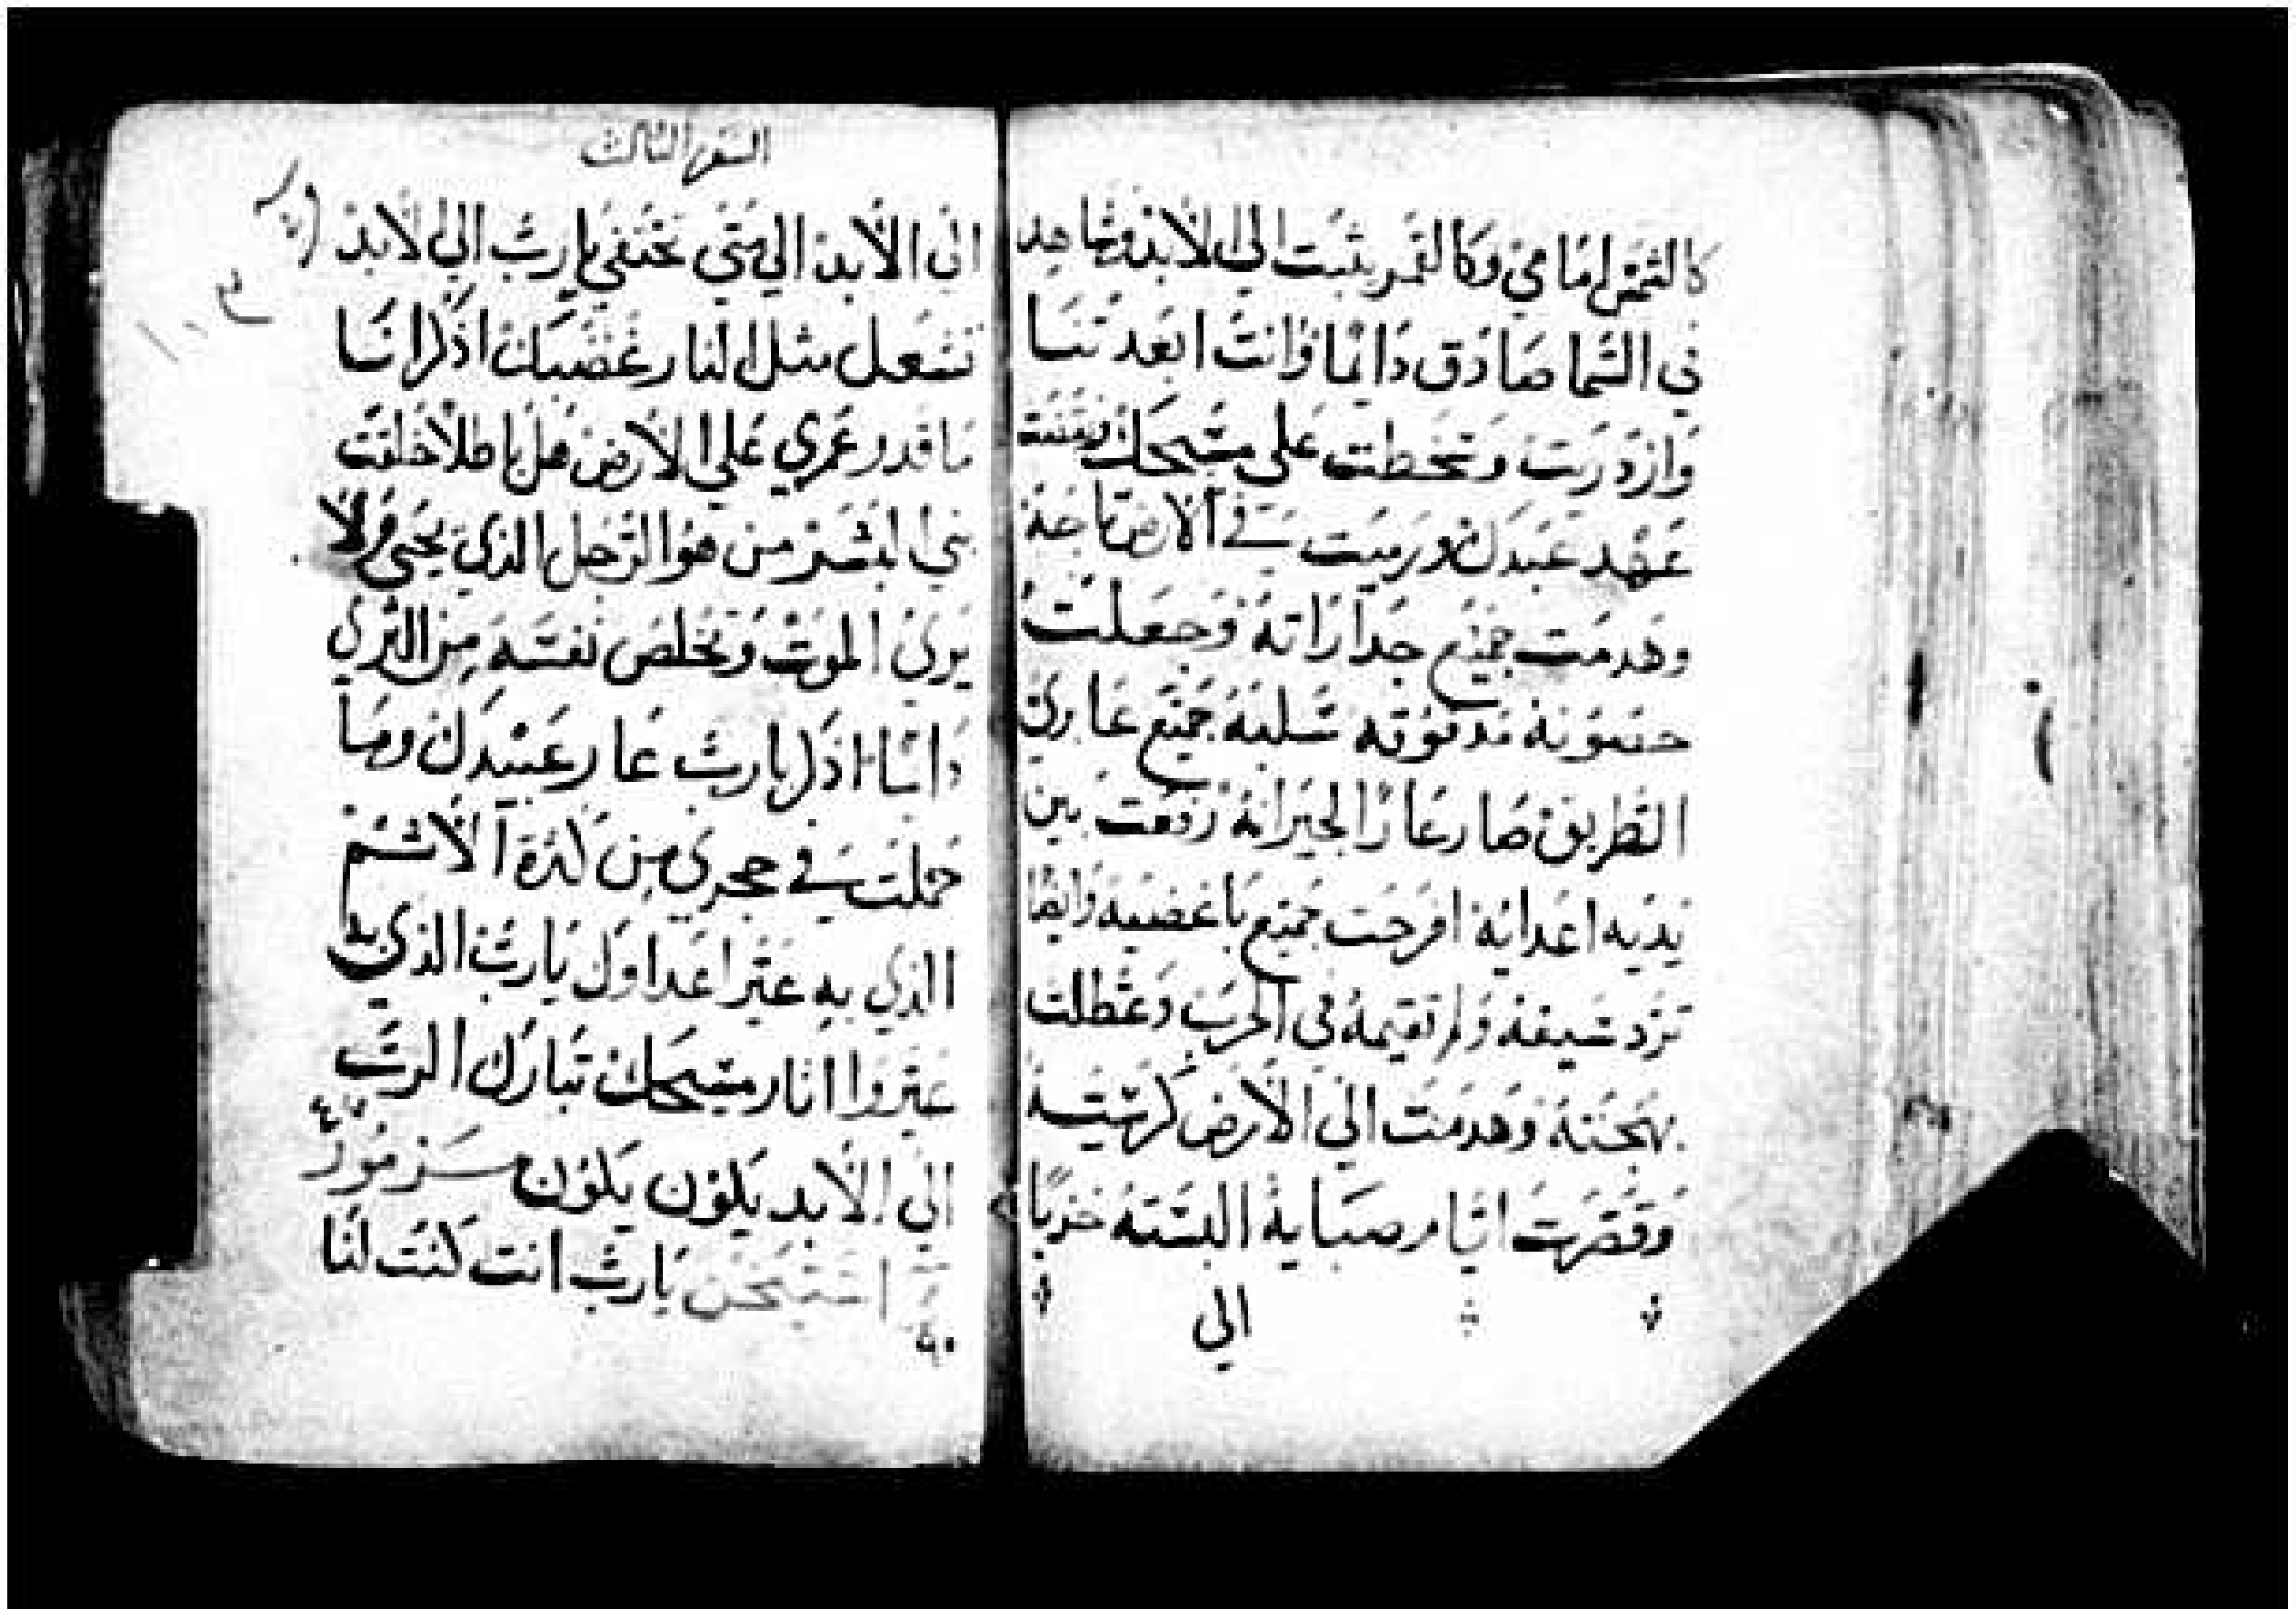 كالشمس امامي وكالقمر يثبت الي الابد وشاهد
في السما صادق دايما وانت ابعدتنا
وازدريت وتخطت علي مسيحك نقضت
عهد عبدك ورميت في الارض
وهدمت جميع جداراته وجعلت
حصونه مدقوقه سلبه جميع عابري
الطريق صار عارا لجيرانه رفعت بين
يديه اعدايه افرحت جميع باغضيه وايضا
ترد سيفه ولم تقيمه في الحرب وعطلت
بهجته وهدمت الي الارض كرسيه
وقصرت ايام صبايه البسته خزيا
الي
السفر الثالث
الي الابد الي متي تختفي يارب الي لابد
تشعل مثل النار غضبك اذكر انا
ما قدر عمري علي الارض هل باطلا خلقت
بني البشر من هو الرجل الذي يحيي ولا
يري الموت وتخلص نفسه من الثري
دايما اذكر يارب عار عبيدك وما
حملت في حجري من كثرة الاشم
الذي به عيَّر اعداوك يارب الذي بد
عيروا اثار مسيحك تبارك الرب
الي الابد يكون يكون مزمور
يارب انت كنت لنا